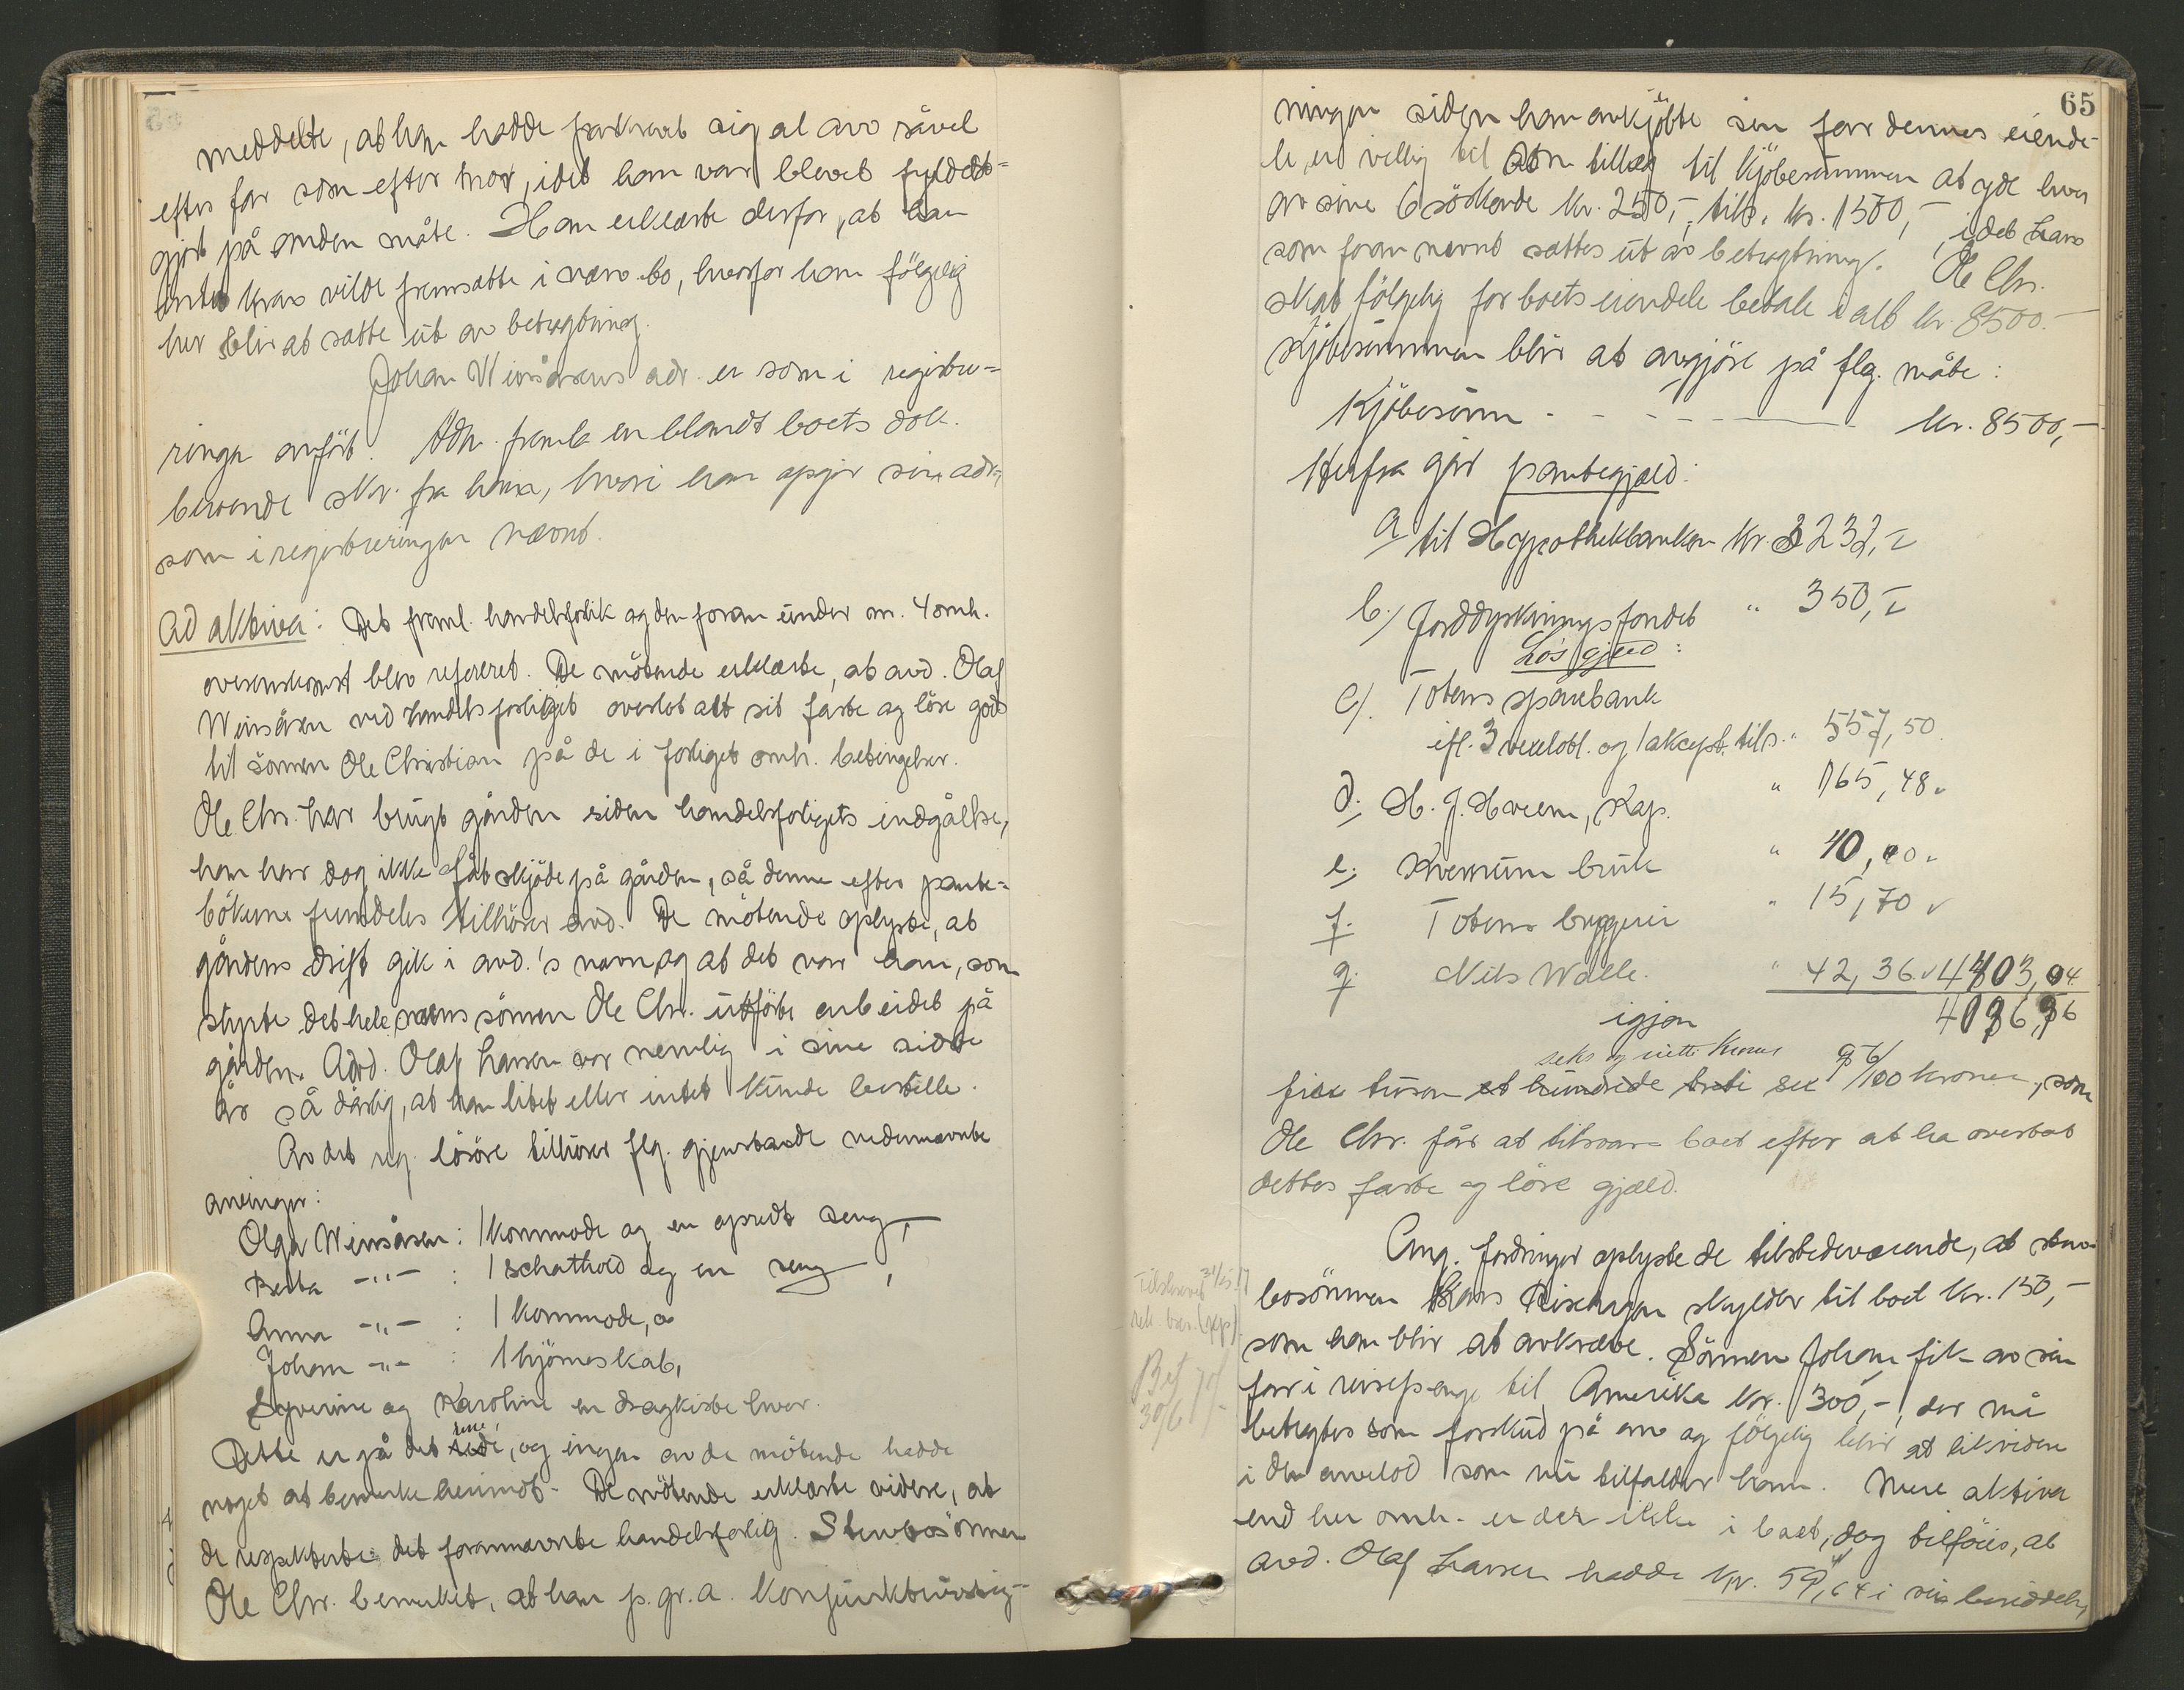 meddelte, at han hadde frakrevet sig al arv såvel
efter far som efter mor, idet han var blevet fyldest-
gjort på anden måte. Han erklærte derfor, at han
intet krav vilde fremsætte i nærv. bo, hvorfor han følgelig
her blir at sætte ut av betragtning.
Johan Winsåsens adr. er som i registre-
ringen anført. Adv. fremla en blandt boets dok.
beroende skr. fra ham, hvori han opgir sin adr.,
som i registreringen nævnt.
Ad aktiva: Det freml. handelsforlik og den foran under nr. 4 omh.
overenskomst blev referert. De møtende erklærte, at avd. Olaf
Winsåsen ved handelsforliget overlot alt sit faste og løse gods
til sønnen Ole Christian på de i forliget omh. betingelser.
Ole Chr. har brugt gården siden handelsforligets indgåelse,
han har dog ikke fåt skjøde på gården, så denne efter pante-
bøkerne fremdeles tilhører avd. De møtende oplyste, at
gårdens drift gik i avd.'s navn og at det var han, som
styrte det hele, mens sønnen Ole Chr. utførte arbeidet på
gården. Avd. Olaf Larsen var nemlig i sine sidste
år så dårlig, at han litet eller intet kunde bestille.
Av det reg. løsøre tilhører flg. gjenstande nedennævnte
arvinger:
Olga Winsåsen: 1 kommode og en opredt seng,
Berta -"- : 1 schathold og en seng,
Anna -"- : 1 kommode, og
Johan -"- : 1 hjørneskab,
Syverine og Karoline en dragkiste hver.
Dette er på det rene, og ingen av de møtende hadde
noget at bemerke herimot. De møtende erklærte videre, at
de respekterte det forannævnte handelsforlig. Stervbosønnen
Ole Chr. bemerket, at han p. gr. a. konjunkturstig-
65
ningen siden han avkjøpte sin far dennes eiende-
le, er villig til som tillæg til kjøbesummen at yde hver
av sine 6 søskende kr. 250,-, tils. kr. 1500,-, idet Lars
som foran nævnt sættes ut av betragtning. Ole Chr.
skal følgelig for boets eiendele betale i alt kr. 8500.-
Kjøbesummen blir at avgjøre på flg. måte:
Kjøbesum - - - - - kr. 8500,-
Herfra går pantegjæld:
a, til Hypothekbanken kr. 3232,-
b/ Jorddyrkningsfondet " 350,-
Løs gjæld:
c/. Totens sparebank
ifl. 3 vexelobl. og 1 aksept. tils. " 557,50.
d; H. J. Hveem, Kap. " 165,48.
e; Kremum bruk " 40,00.
f. Totens bryggeri " 15,70
g. Nils Walle. " 42,36. 4403,04.
igjen 4096,96
seks og nitti kroner
fire tusen et hundrede tretti sek 96/100 kroner, som
Ole Chr. får at tilsvare boet efter at ha overtat
dettes faste og løse gjæld.
Ang. fordringer oplyste de tilstedeværende, at sterv-
bosønnen Lars skylder til boet kr. 150,-
som han blir at avkræve. Sønnen Johan fik av sin
far i reisepenge til Amerika kr. 300,-, der må
betragtes som forskud på arv og følgelig blir at likvidere
i den arvelod som nu tilfalder ham. Mere aktiva
end her omh. er der ikke i boet, dog tilføies, at
avd. Olaf Larsen hadde kr. 59,64 i
Tilskrevet 31/5 17
Bet
30/6